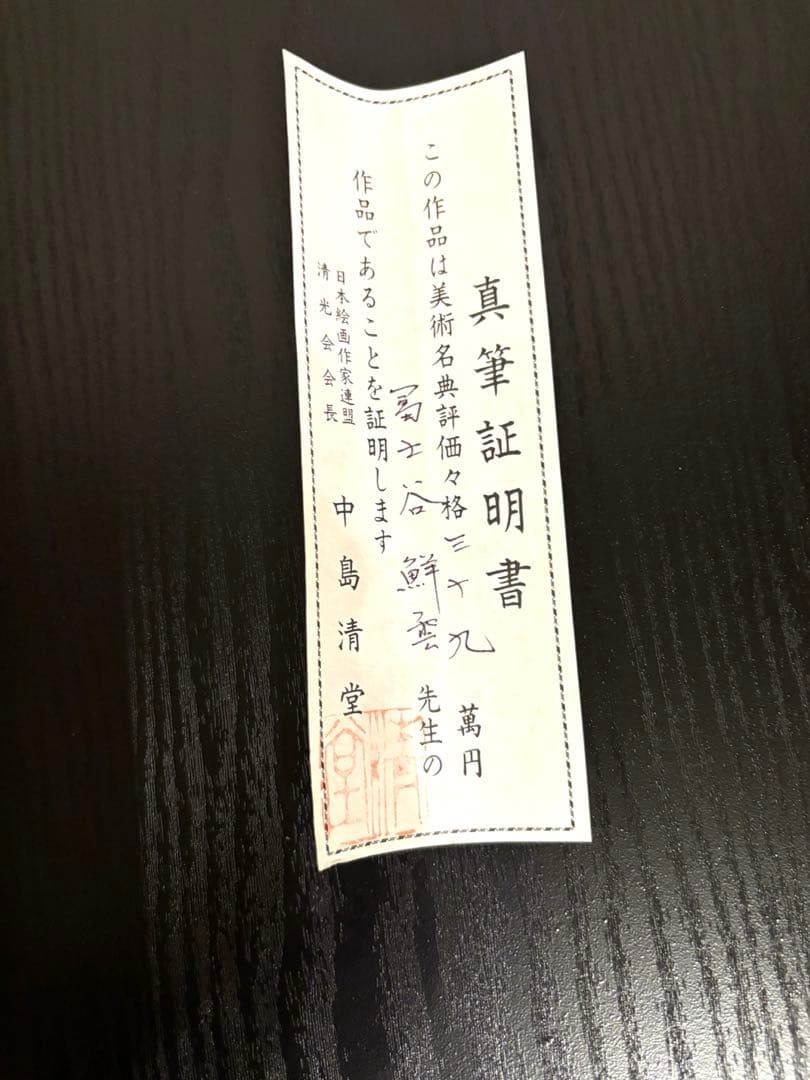 真筆証明書
この作品は美術名典評価々格三十九萬円
冨士谷鮮雲先生の
作品であることを証明します
日本絵画作家連盟
清光会会長
中島清堂
清堂